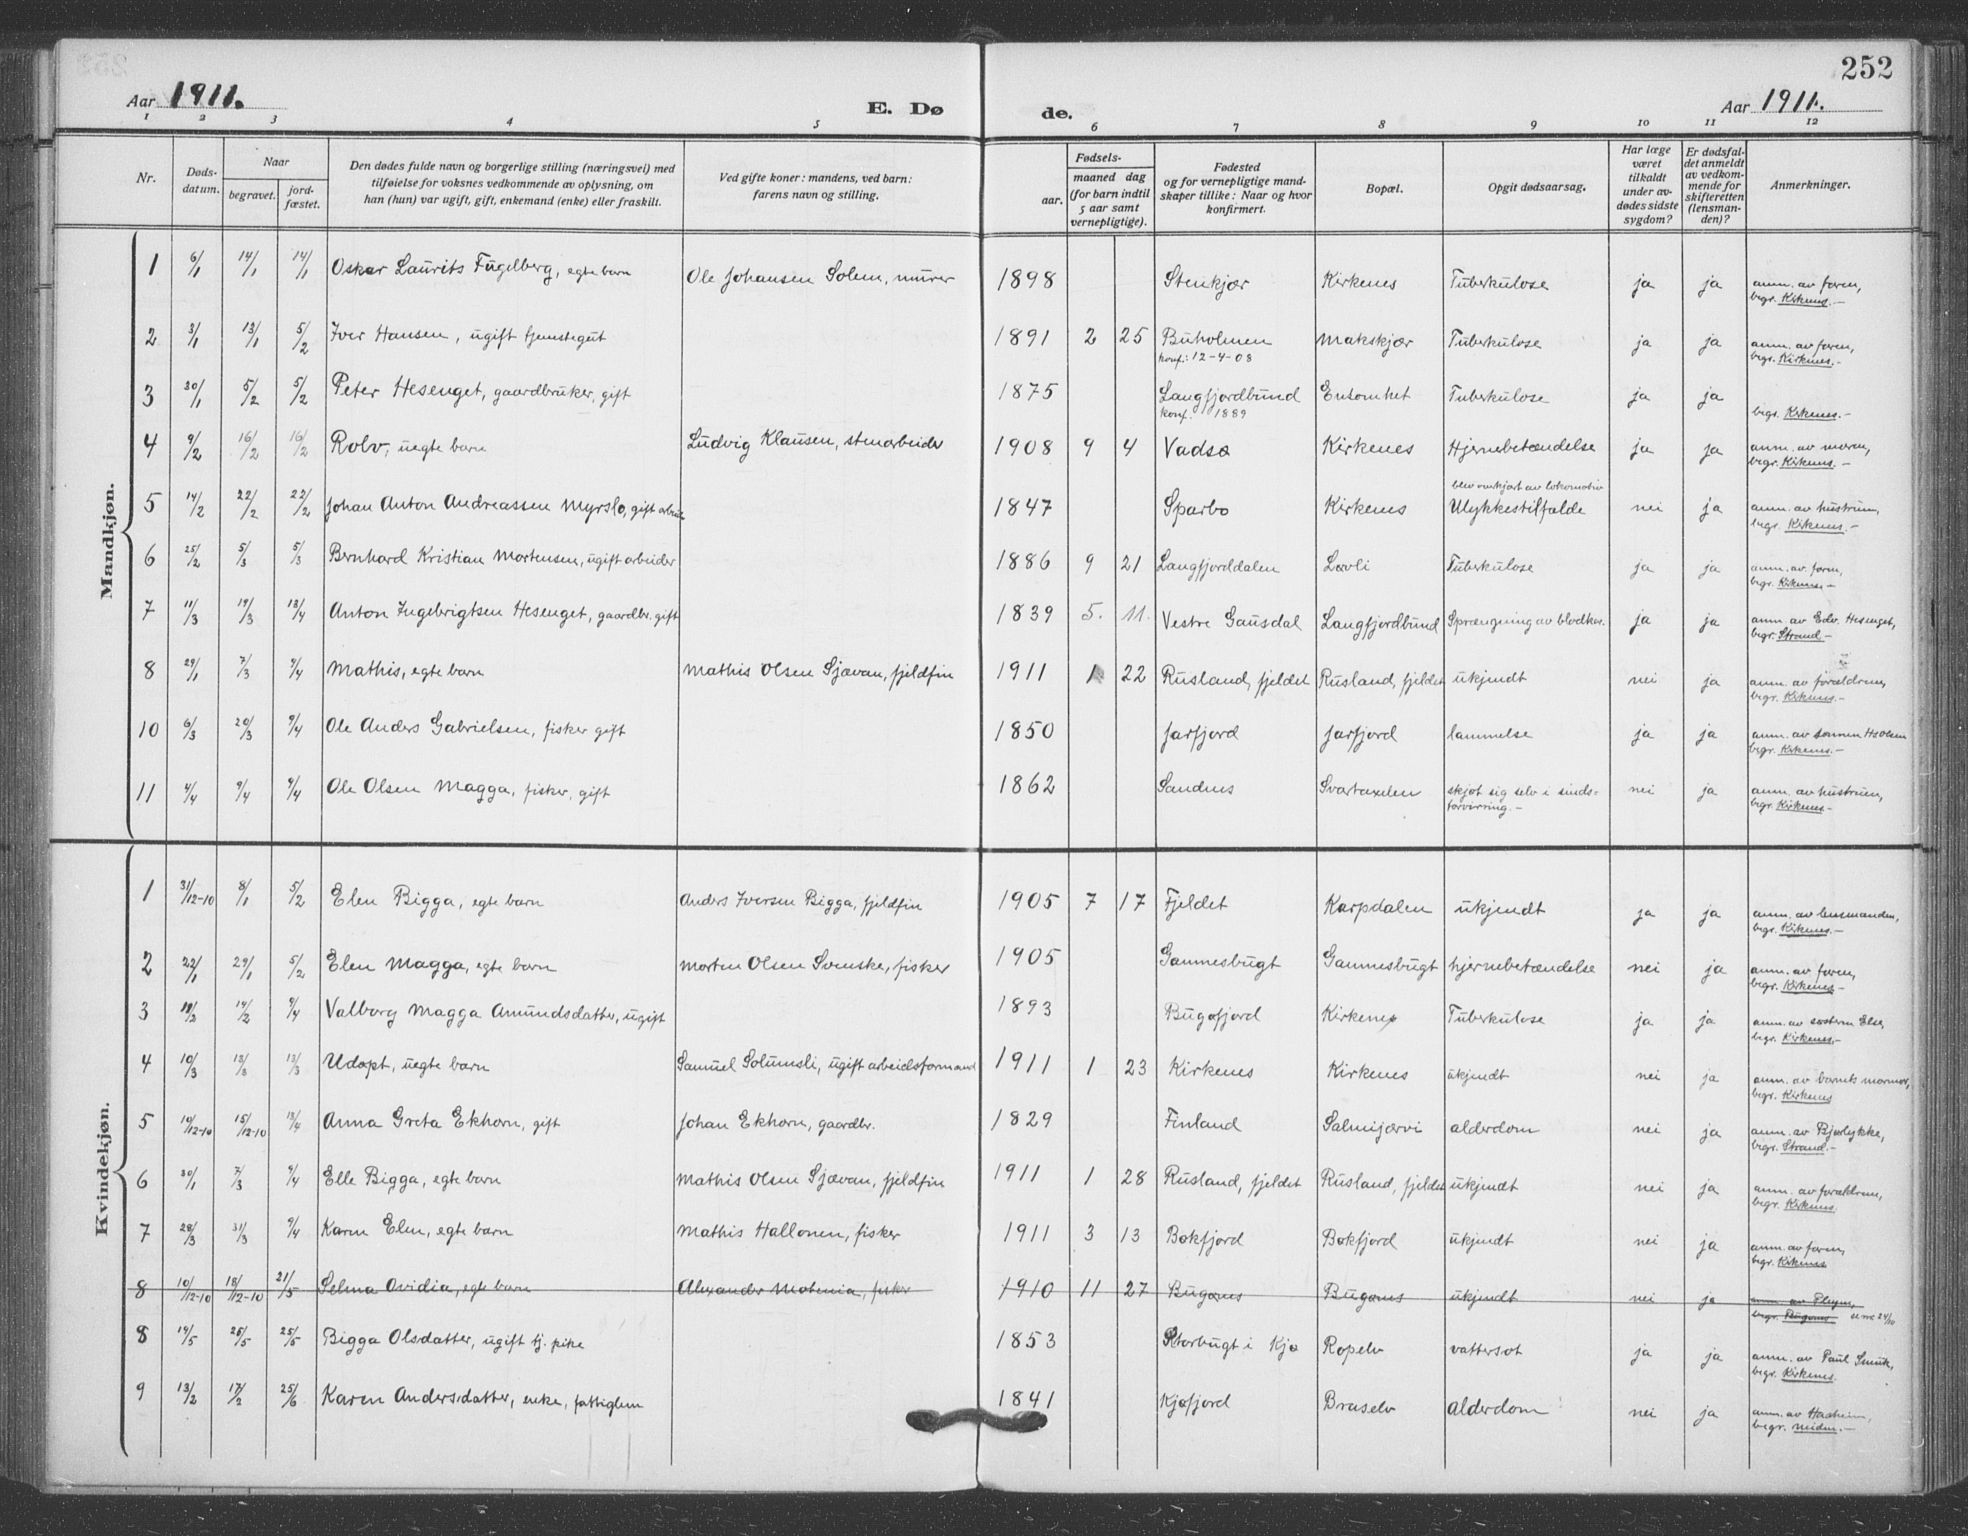 252
Aar 1911. E. Dø de. Aar 1911.
1 2 3 4 5 6 7 8 9 10 11 12
Nr. Døds-datum. Naar begravet. jord-fæstet. Den dødes fulde navn og borgerlige stilling (næringsvei) med tilføielse for voksnes vedkommende av oplysning, om han (hun) var ugift, gift, enkemand (enke) eller fraskilt. Ved gifte koner: mandens, ved barn: farens navn og stilling. Fødsels- aar. maaned dag (for barn indtil 5 aar samt vernepligtige). Fødested og for vernepligtige mandskaper tillike: Naar og hvor konfirmert. Bopæl. Opgit dødsaarsag. Har læge været tilkaldt under avdødes sidste sygdom? Er dødsfaldet anmeldt av vedkommende for skifteretten (lensmanden)? Anmerkninger.
Mandkjøn.
1 6/1 14/1 14/1 Oskar Laurits Fugelberg, egte barn Ole Johansen Solem, murer 1898 Stenkjær Kirkenes Tuberkulose ja ja anm. av faren, begr. Kirkenes.-
2 3/1 13/1 5/2 Iver Hansen, ugift tjenstegut 1891 2 25 Buholmen konf: 12-4-08 Makskjær Tuberkulose ja ja anm. av faren, begr. Kirkenes.-
3 20/1 5/2 5/2 Peter Hesenget, gaardbruker, gift 1875 Langfjordbund konf. 1889 Ensomhet Tuberkulose ja ja begr. Kirkenes.-
4 9/2 16/2 16/2 Rolv, uegte barn Ludvig Klausen, stenarbeider 1908 9 4 Vadsø Kirkenes Hjernebetændelse ja ja anm. av moren, begr. Kirkenes.-
5 14/2 22/2 22/2 Johan Anton Andreassen Myrslo, gift arbeider 1847 Sparbo Kirkenes blev overkjørt av lokomotiv Ulykkestilfælde nei ja anm. av hustruen, begr. Kirkenes.-
6 25/2 5/3 5/3 Bernhard Kristian Mortensen, ugift arbeider 1886 9 21 Langfjorddalen Løvli Tuberkulose ja ja anm. av faren, begr. Kirkenes.-
7 11/3 19/3 18/4 Anton Ingebrigtsen Hesenget, gaardbr. gift 1839 5. 11. Vestre Gausdal Langfjordbund Sprængning av blodkar. ja ja anm. av Edv. Hesenget, begr. Strand.-
8 29/1 7/3 9/4 Mathis, egte barn Mathis Olsen Sjævan, fjeldfin 1911 1 22 Rusland, fjeldet Rusland, fjeldet ukjendt nei ja anm. av forældrene, begr. Kirkenes.-
10 6/3 20/3 9/4 Ole Anders Gabrielsen, fisker gift 1850 Jarfjord Jarfjord lammelse ja ja anm. av sønnen HsOlsen begr. Kirkenes.-
11 4/4 9/4 9/4 Ole Olsen Magga, fisker, gift 1862 Sandnes Svartaxelen skjøt sig selv i sinds-forvirring.- nei ja anm. av hustruen, begr. Kirkenes.-
Kvindekjøn.
1 31/12-10 8/1 5/2 Elen Bigga, egte barn Anders Iversen Bigga, fjeldfin 1905 7 17 Fjeldet Karpdalen ukjendt ja ja anm. av lensmanden, begr. Kirkenes.-
2 22/1 29/1 5/2 Elen Magga, egte barn Morten Olsen Svenske, fisker 1905 Gammesbugt Gammesbugt hjernebetændelse nei ja anm. av faren, begr. Kirkenes.-
3 14/2 9/4 Valborg Magga Amundsdatter, ugift 1893 Bugøfjord Kirkenes Tuberkulose ja ja anm. av søsteren Else, begr. Kirkenes.-
4 10/3 13/3 13/3 Udøpt, uegte barn Samuel Solumsli, ugift arbeidsformand 1911 1 23 Kirkenes Kirkenes ukjendt nei ja anm. av barnets mormor, begr. Kirkenes
5 10/12-10 15/12-10 13/4 Anna Greta Ekhorn, gift Johan Ekhorn, gaardbr. 1829 Finland Salmijærvi alderdom nei ja anm. av Bjørlykke, begr. Strand.-
6 30/1 7/3 9/4 Elle Bigga, egte barn Mathis Olsen Sjævan, fjeldfin 1911 1 28 Rusland, fjeldet Rusland, fjeldet ukjendt nei ja anm. av forældrene, begr. Kirkenes.
7 28/3 31/3 9/4 Karen Elen, egte barn Mathis Hallonen, fisker 1911 3 13 Bøkfjord Bøkfjord ukjendt nei ja anm. av faren, begr. Kirkenes
8 10/12-10 18/12-10 21/5 Selma Ovidia, egte barn Alexander fisker 1910 11 27 Bugønes Bugønes ukjendt nei ja anm. av begr. Bugønes
8 19/5 25/5 25/5 Bigga Olsdatter, ugift tj. pike 1853 Storbugt i Kjø Ropelv vattersot ja ja anm. av Paul Smuk, begr. Kirkenes.
9 13/2 17/2 25/6 Karen Andersdatter, enke, fattiglem 1841 Kjøfjord Braselv alderdom nei ja anm. av Haaheim, begr. Neiden.-